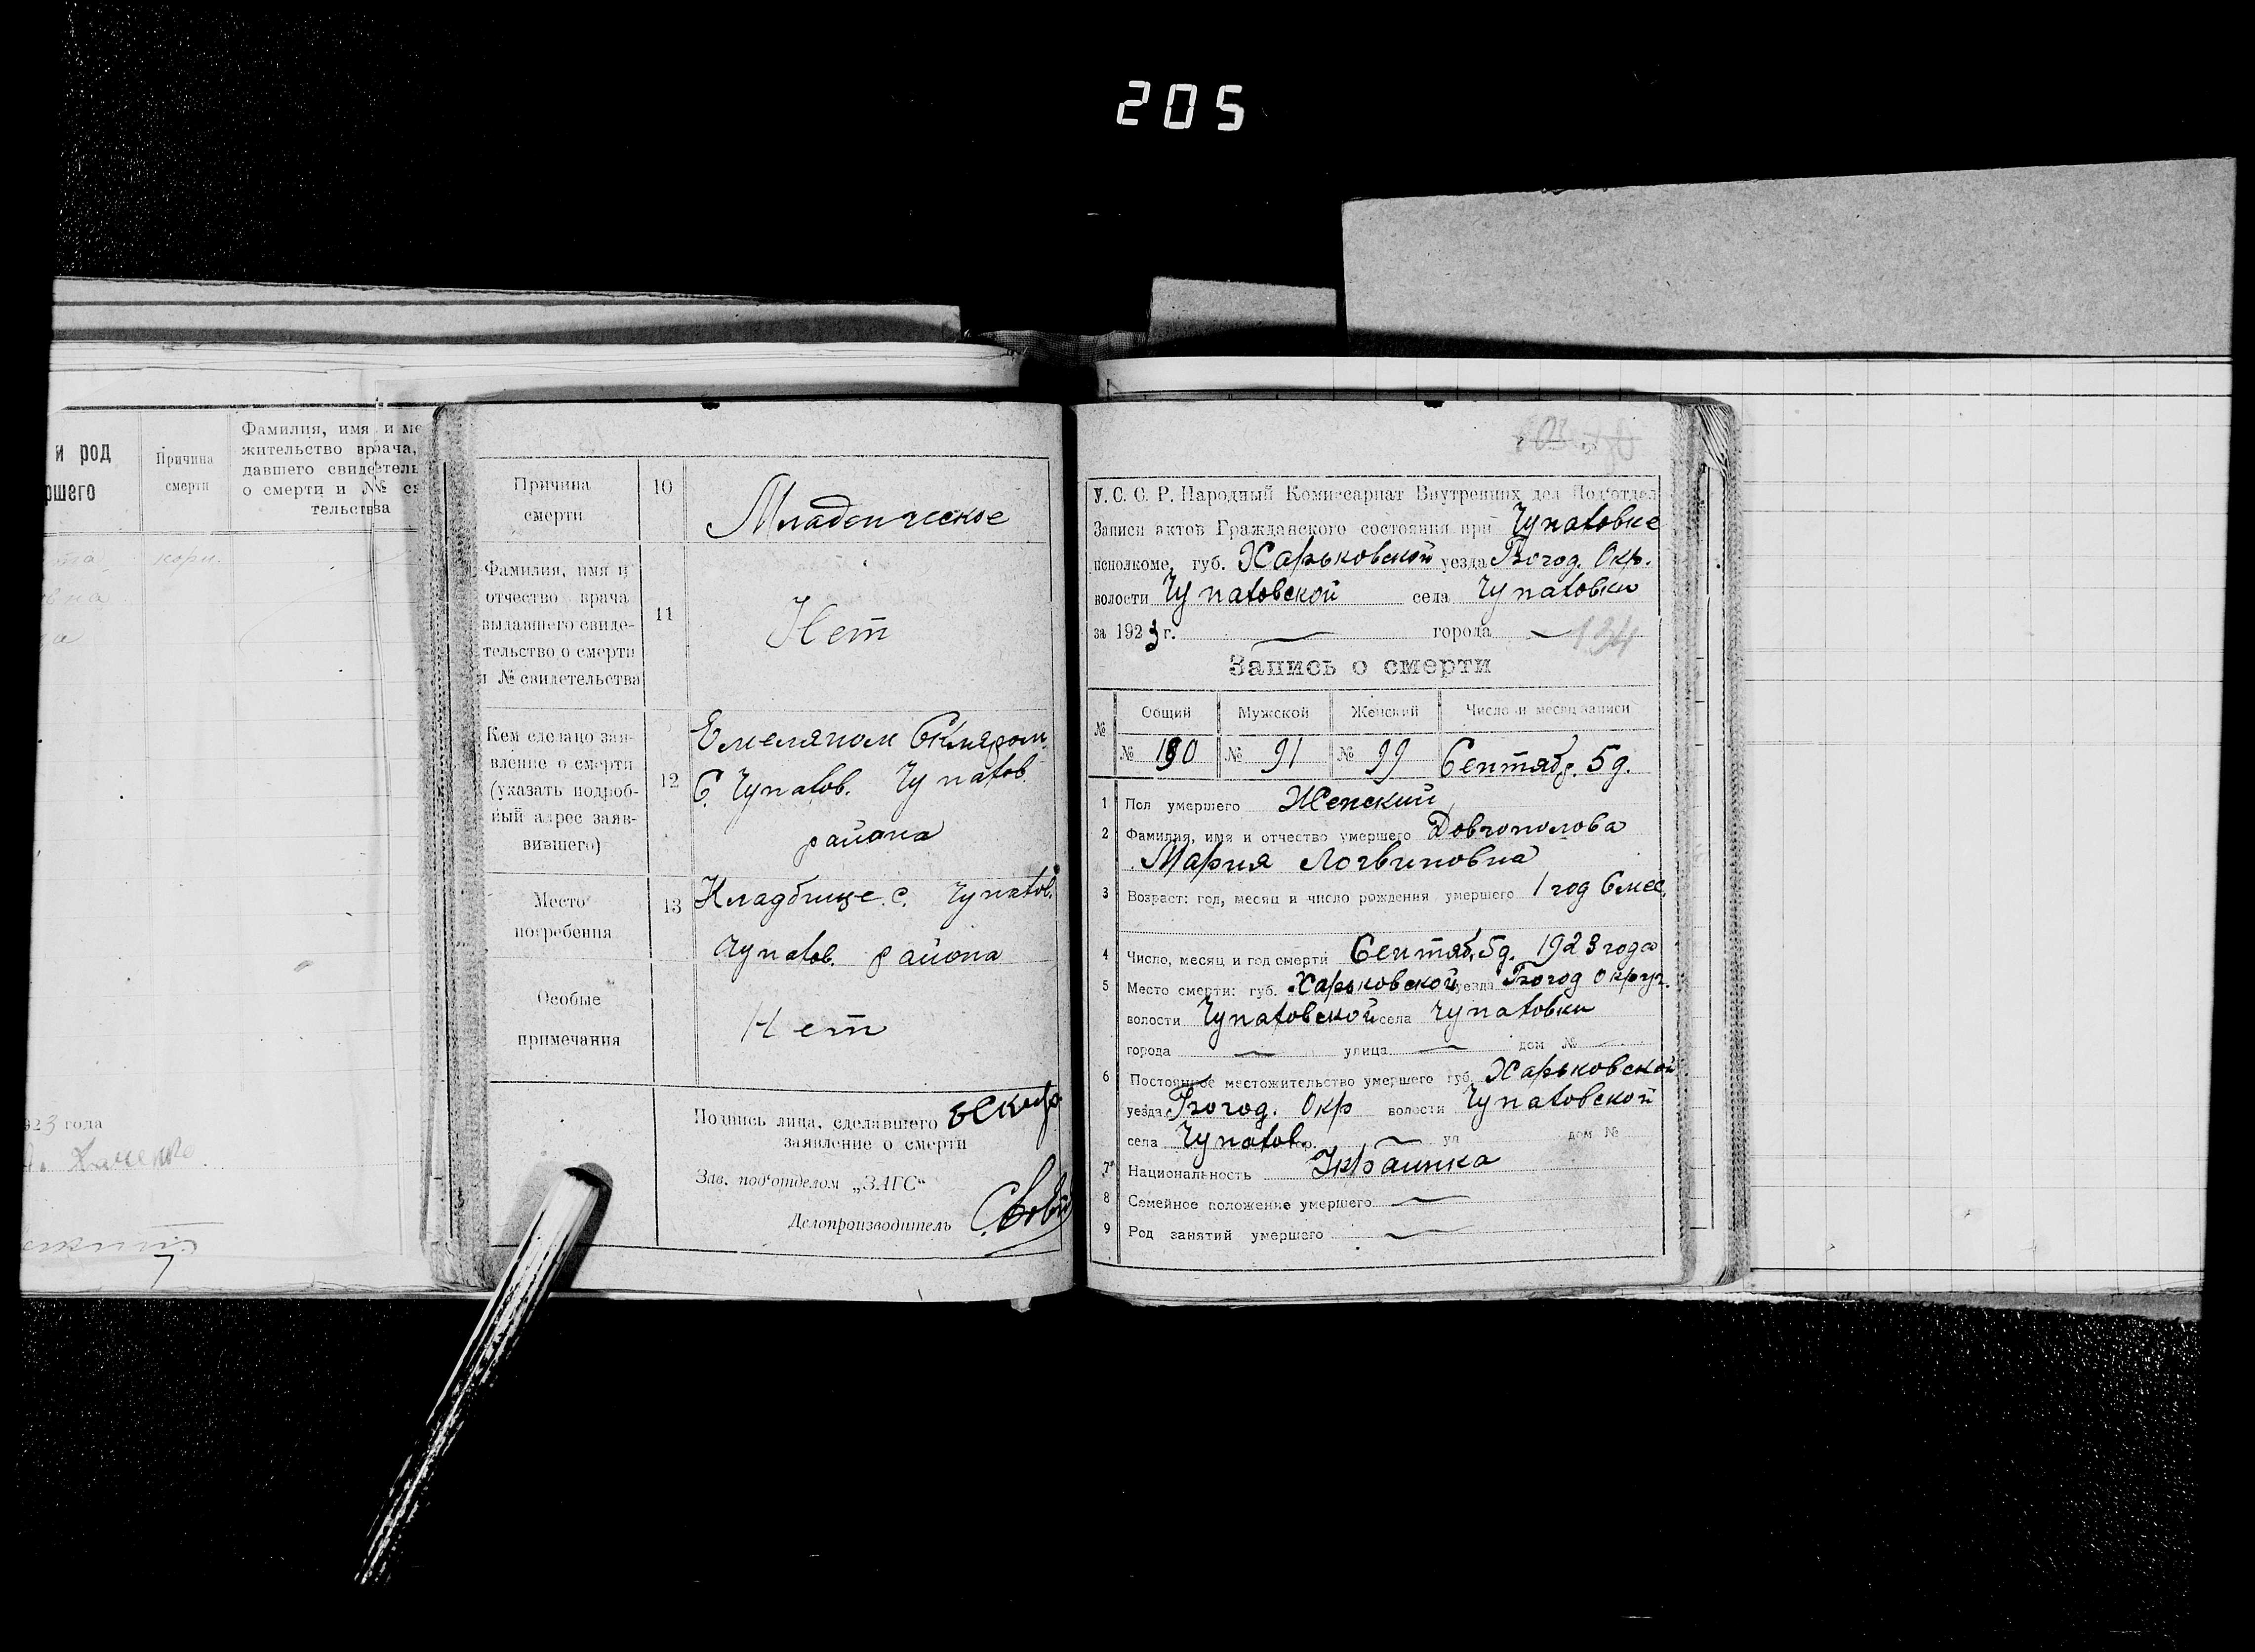 205
и род
ршего
Причина
смерти
Фамилия, имя и ме
жительство врача,
давшего свидетель
о смерти и № св
тельства
кори.
вна
923 года
Причина
смерти
10
Младенческое
Фамилия, имя и
отчество врача
выдавшего свиде-
тельство о смерти
и № свидетельства
11
Нет
Кем сделано зая-
вление о смерти
(указать подроб-
ный адрес заяв-
вившего)
12
Емеляном Скляром
С. Чупатов. Чупатов
района
Место
погребения
13
Кладбище с. Чупатов.
Чупатов. района
Особые
примечания
Нет
Подпись лица, сделавшего
заявление о смерти
Зав. под‘отделом „ЗАГС“
Делопроизводитель
У. С. С. Р. Народный Комиссариат Внутренних дел Под‘отдел
Записи актов Гражданского состояния при Чупатовке
исполкоме, губ. Харьковской уезда Богод. Окр.
волости Чупатовской села Чупатовки
за 1923 г. города
134
Запись о смерти
№ Общий Мужской Женский Число и месяц записи
№ 190 № 91 № 99 Сентябр. 5 д.
1 Пол умершего Женский
2 Фамилия, имя и отчество умершего Довгополова
Мария Логвиновна
3 Возраст: год, месяц и число рождения умершего 1 год 6 мес.
4 Число, месяц и год смерти Сентяб. 5 д. 1923 года
5 Место смерти: губ. Харьковской уезда Богод Округ.
волости Чупатовской села Чупатовки
города улица дом №
6 Постоянное местожительство умершего губ. Харьковской
уезда Богод. Окр волости Чупатовской
села Чупатов. гор. ул дом №
7 Национальность Украинка
8 Семейное положение умершего
9 Род занятий умершего